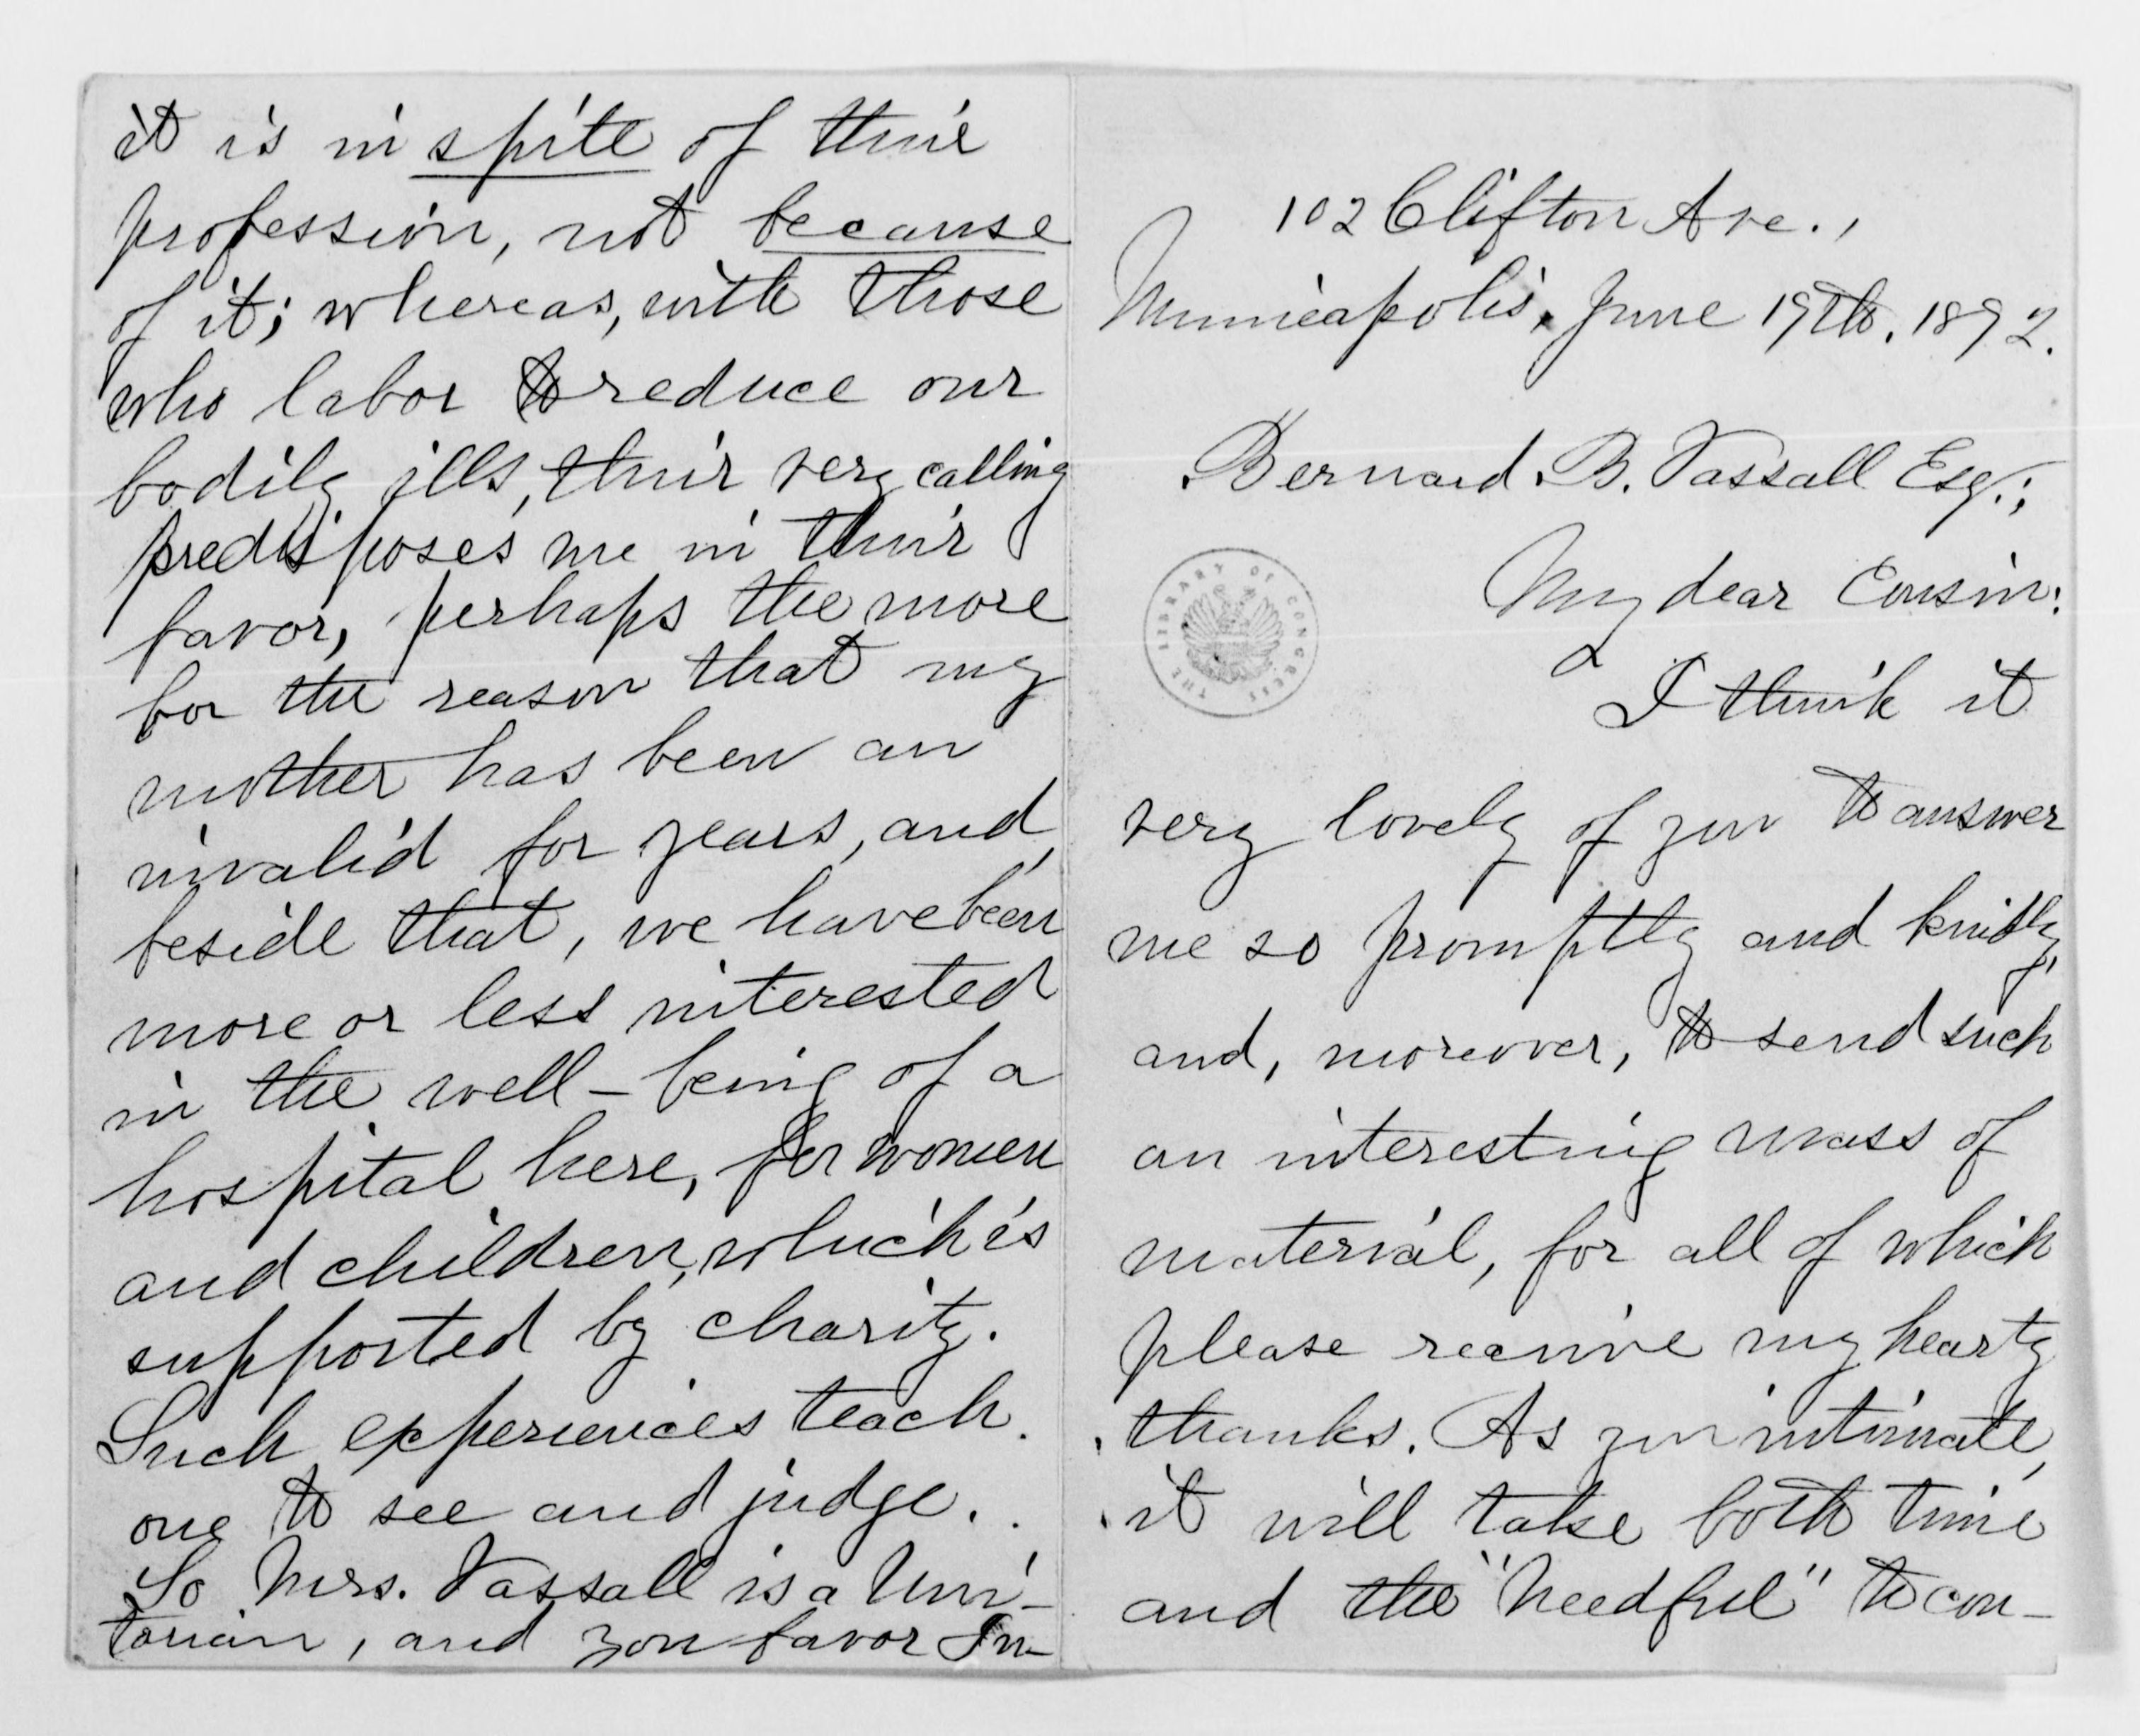 it is in spite of their
profession, not because
of it; whereas, with those
who labor to reduce our
bodily ills, their very calling
predisposes me in their
favor, perhaps the more
for the reason that my
mother has been an
invalid for years, and,
beside that, we have been
more or less interested
in the well-being of a
hospital here, for women
and children, which is
supported by charity.
Such experiences teach
one to see and judge.
So Mrs. Vassall is a Uni-
tarian, and you favor In-
102 Clifton Ave.,
Minneapolis, June 19th, 1892.
Bernard B. Vassall Esq.;
My dear Cousin:
I think it
very lovely of you to answer
me so promptly and kindly,
and, moreover, to send such
an interesting mass of
material, for all of which
please receive my hearty
thanks. As you intimate,
it will take both time
and the "needful" to con-
THE LIBRARY OF CONGRESS